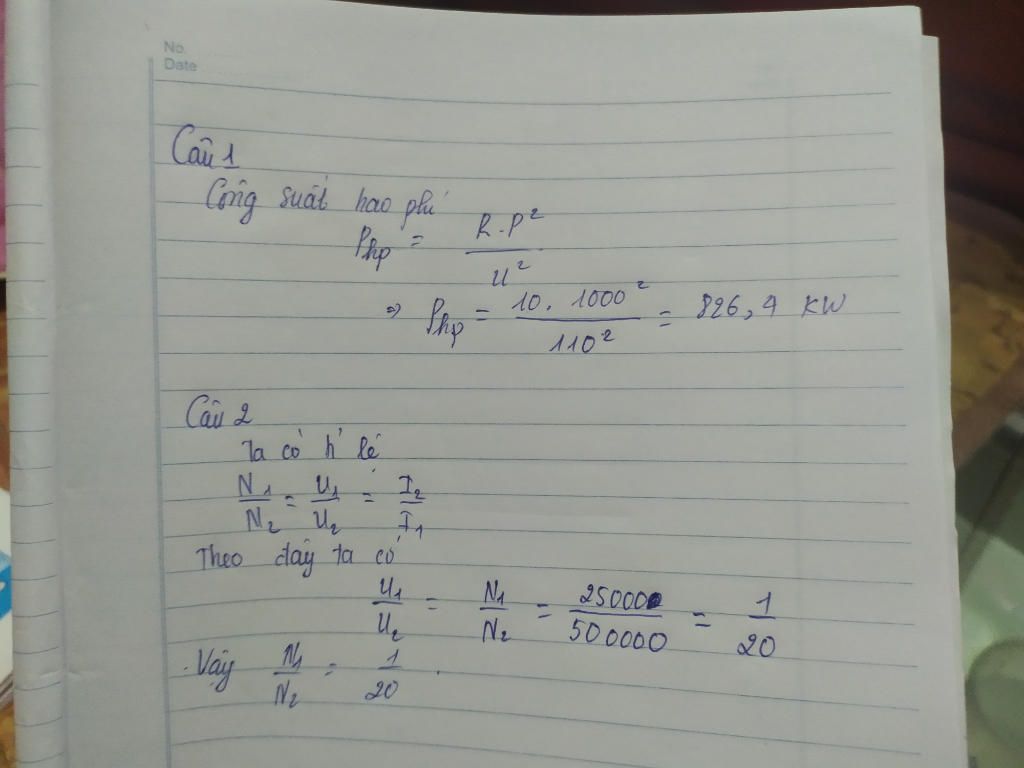 No.
Date
Câu 1
Công suất hao phí
Php = R.P² / U²
⇒ Php = 10. 1000² / 110² = 826,4 KW
Câu 2
Ta có tỉ lệ
N₁/N₂ = U₁/U₂ = I₂/I₁
Theo đây ta có
U₁/U₂ = N₁/N₂ = 25000/500000 = 1/20
Vậy N₁/N₂ = 1/20.